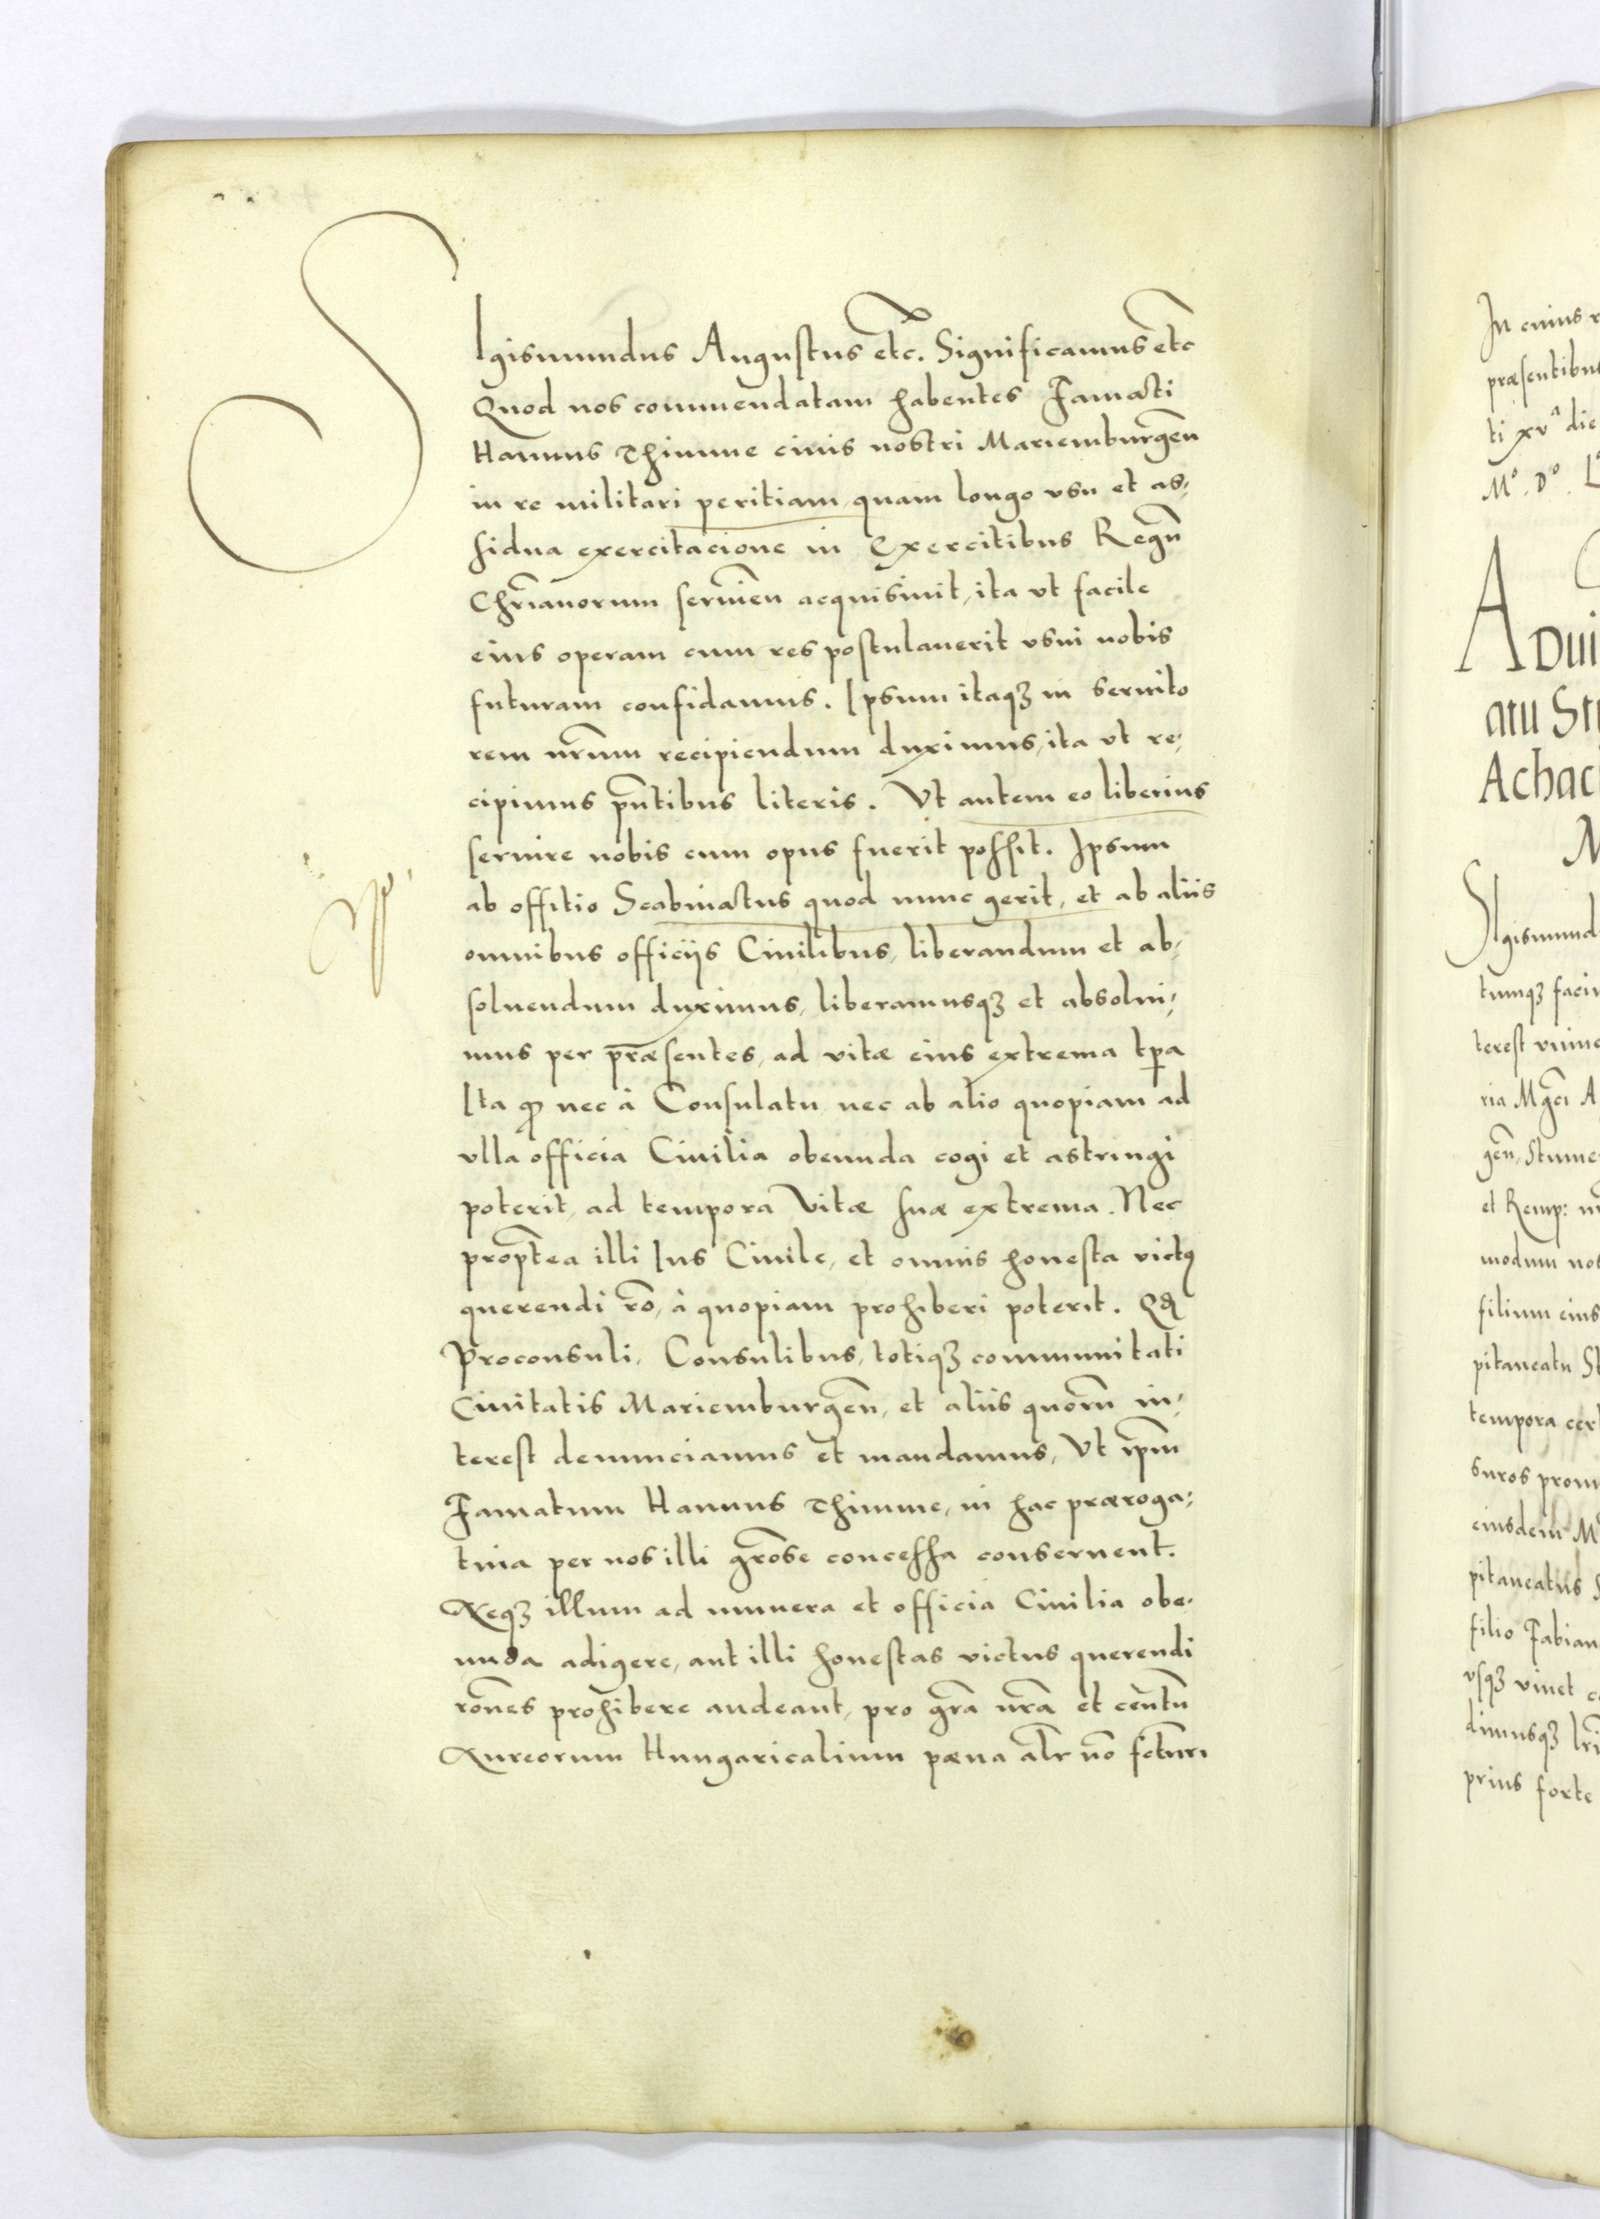 SIgismundus Augustus etc. Significamus etc
Quod nos commendatam habentes Famati
Hannus Thimme ciuis nostri Mariemburgen̄
in re militari peritiam, quam longo vsu et as,
sidua exercitacione in Exercitibus Regū
Chr̄ianorum seruien̄ acquisiuit, ita vt facile
eius operam cum res postulauerit vsui nobis
futuram confidamus. Ipsum itaqꝫ in seruito
rem nr̄um recipiendum duximus, ita vt re,
cipimus pn̄tibus literis. Vt autem eo liberius
seruire nobis cum opus fuerit possit. Ipsum
ab offitio Scabinatus quod nunc gerit, et ab aliis
omnibus officijs Ciuilibus, liberandum et ab,
soluendum duximus, liberamusqꝫ et absolui,
mus per præsentes, ad vitæ eius extrema tp̄a
Ita ꝙ nec à Consulatu nec ab alio quopiam ad
vlla officia Ciuilia obeunda cogi et astringi
poterit, ad tempora Vitæ suæ extrema. Nec
propt̄ea illi Ius Ciuile, et omnis honesta victꝰ
querendi rō, à quopiam prohiberi poterit. Qđ
Proconsuli, Consulibus, totiqꝫ communitati
Ciuitatis Mariemburgen̄, et aliis quorū in,
terest denunciamus et mandamus, Vt ip̄m
Famatum Hannus Thimme, in hac præroga,
tiua per nos illi gr̄ose concessa conseruent.
Neqꝫ illum ad munera et officia Ciuilia obe,
unda adigere, aut illi honestas victus querendi
rōnes prohibere audeant, pro gr̄a nr̄a et centū
Aureorum Hungaricalium pæna alr̄ nō fc̄turi
In cuius
præsentibus
ti xvᵃ die
Mᵒ. Dᵒ.
ADui
atu
Achaci
SIgismund
tumqꝫ
terest
ria Mgc̄i
gen̄,
et Remp:
modum nos
filium eius
pitaneatu
tempora
suros
eiusdem
pitaneatus
filio Fabian
vsqꝫ viuet
dimusqꝫ
prius forte